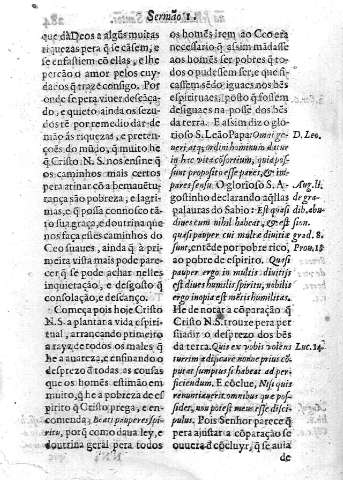 Sermão 1.
que dá Deos a algũs muitas
riquezas pera q̃ se cãsem, e
se enfastiem cõ ellas, e lhe
percão o amor pelos cuy-
dados q̃ trazẽ consigo. Por
onde se pera viver descãça-
do, e quieto ainda os sezu-
dos tẽ por remedio dar de
mão ás riquezas, e preten-
ções do mũdo, q̃ muito he
q̃ Cristo N. S. nos ensine q̃
os caminhos mais certos
pera atinar cõ a bemavẽtu-
rança são pobreza, e lagri-
mas, e q̃ possa connosco tã-
to sua graça, e doutrina que
nos faça estes caminhos do
Ceo suaves, ainda q̃ à pri-
meira vista mais pode pare-
cer q̃ se pode achar nelles
inquietação, e desgosto q̃
consolação, e descanço.
Começa pois hoje Cristo
N. S. a plantar a vida espi-
ritual, arrancando primeiro
a rayz de todos os males q̃
he a avareza, e ensinando o
desprezo de todas as cousas
que os homẽs estimão em
muito, q̃ he a pobreza de es
pirito q̃ Cristo prega, e en-
comenda: Beati pauperes spi-
ritu, porq̃ como daua ley, e
doutrina geral pera todos
os homẽs irem ao Ceo era
necessario q̃ assim mãdasse
aos homẽs ser pobres q̃ to-
dos o pudessem ser, e que fi-
cassem nesso iguaes nos bẽs
espirituaes, posto q̃ fossem
desiguaes na posse dos bẽs
da terra. E assim diz o glo-
rioso S. Leão Papa: Omni ge-
neri, atq; ordini hominum datur
in hac vita cõsortium, quia pos-
sunt proposito esse pares, & im-
pares censu. O glorioso S. A-
gostinho declarando aq̃llas
palauras do Sabio: Est quasi
diues cum nihil habeat, & est
quasi pauper cui multæ diuitiæ
sunt, entẽde por pobre rico,
ao pobre de espirito. Quasi
pauper ergo in multis diuitijs
est diues humilis spiritu, nobilis
ergo inopia est mẽtis humilitas.
He de notar a cõparação q̃
Cristo N. S. trouxe pera per
suadir o desprezo dos bẽs
da terra. Quis ex vobis volens
turrim ædificare nonne prius cõ
putat sumptus si habeat ad per-
ficiendum. E cõclue, Nisi quis
renuntiauerit omnibus quæ pos-
sidet, non potest meus esse disci-
pulus. Pois Senhor parece q̃
pera ajustar a cõparação se
ouuera d̃ cõcluyr, q̃ se auia
de
D. Leo.
Aug. li.
de gra-
dib. abu-
sion.
grad. 8.
Prou. 13
Luc. 14